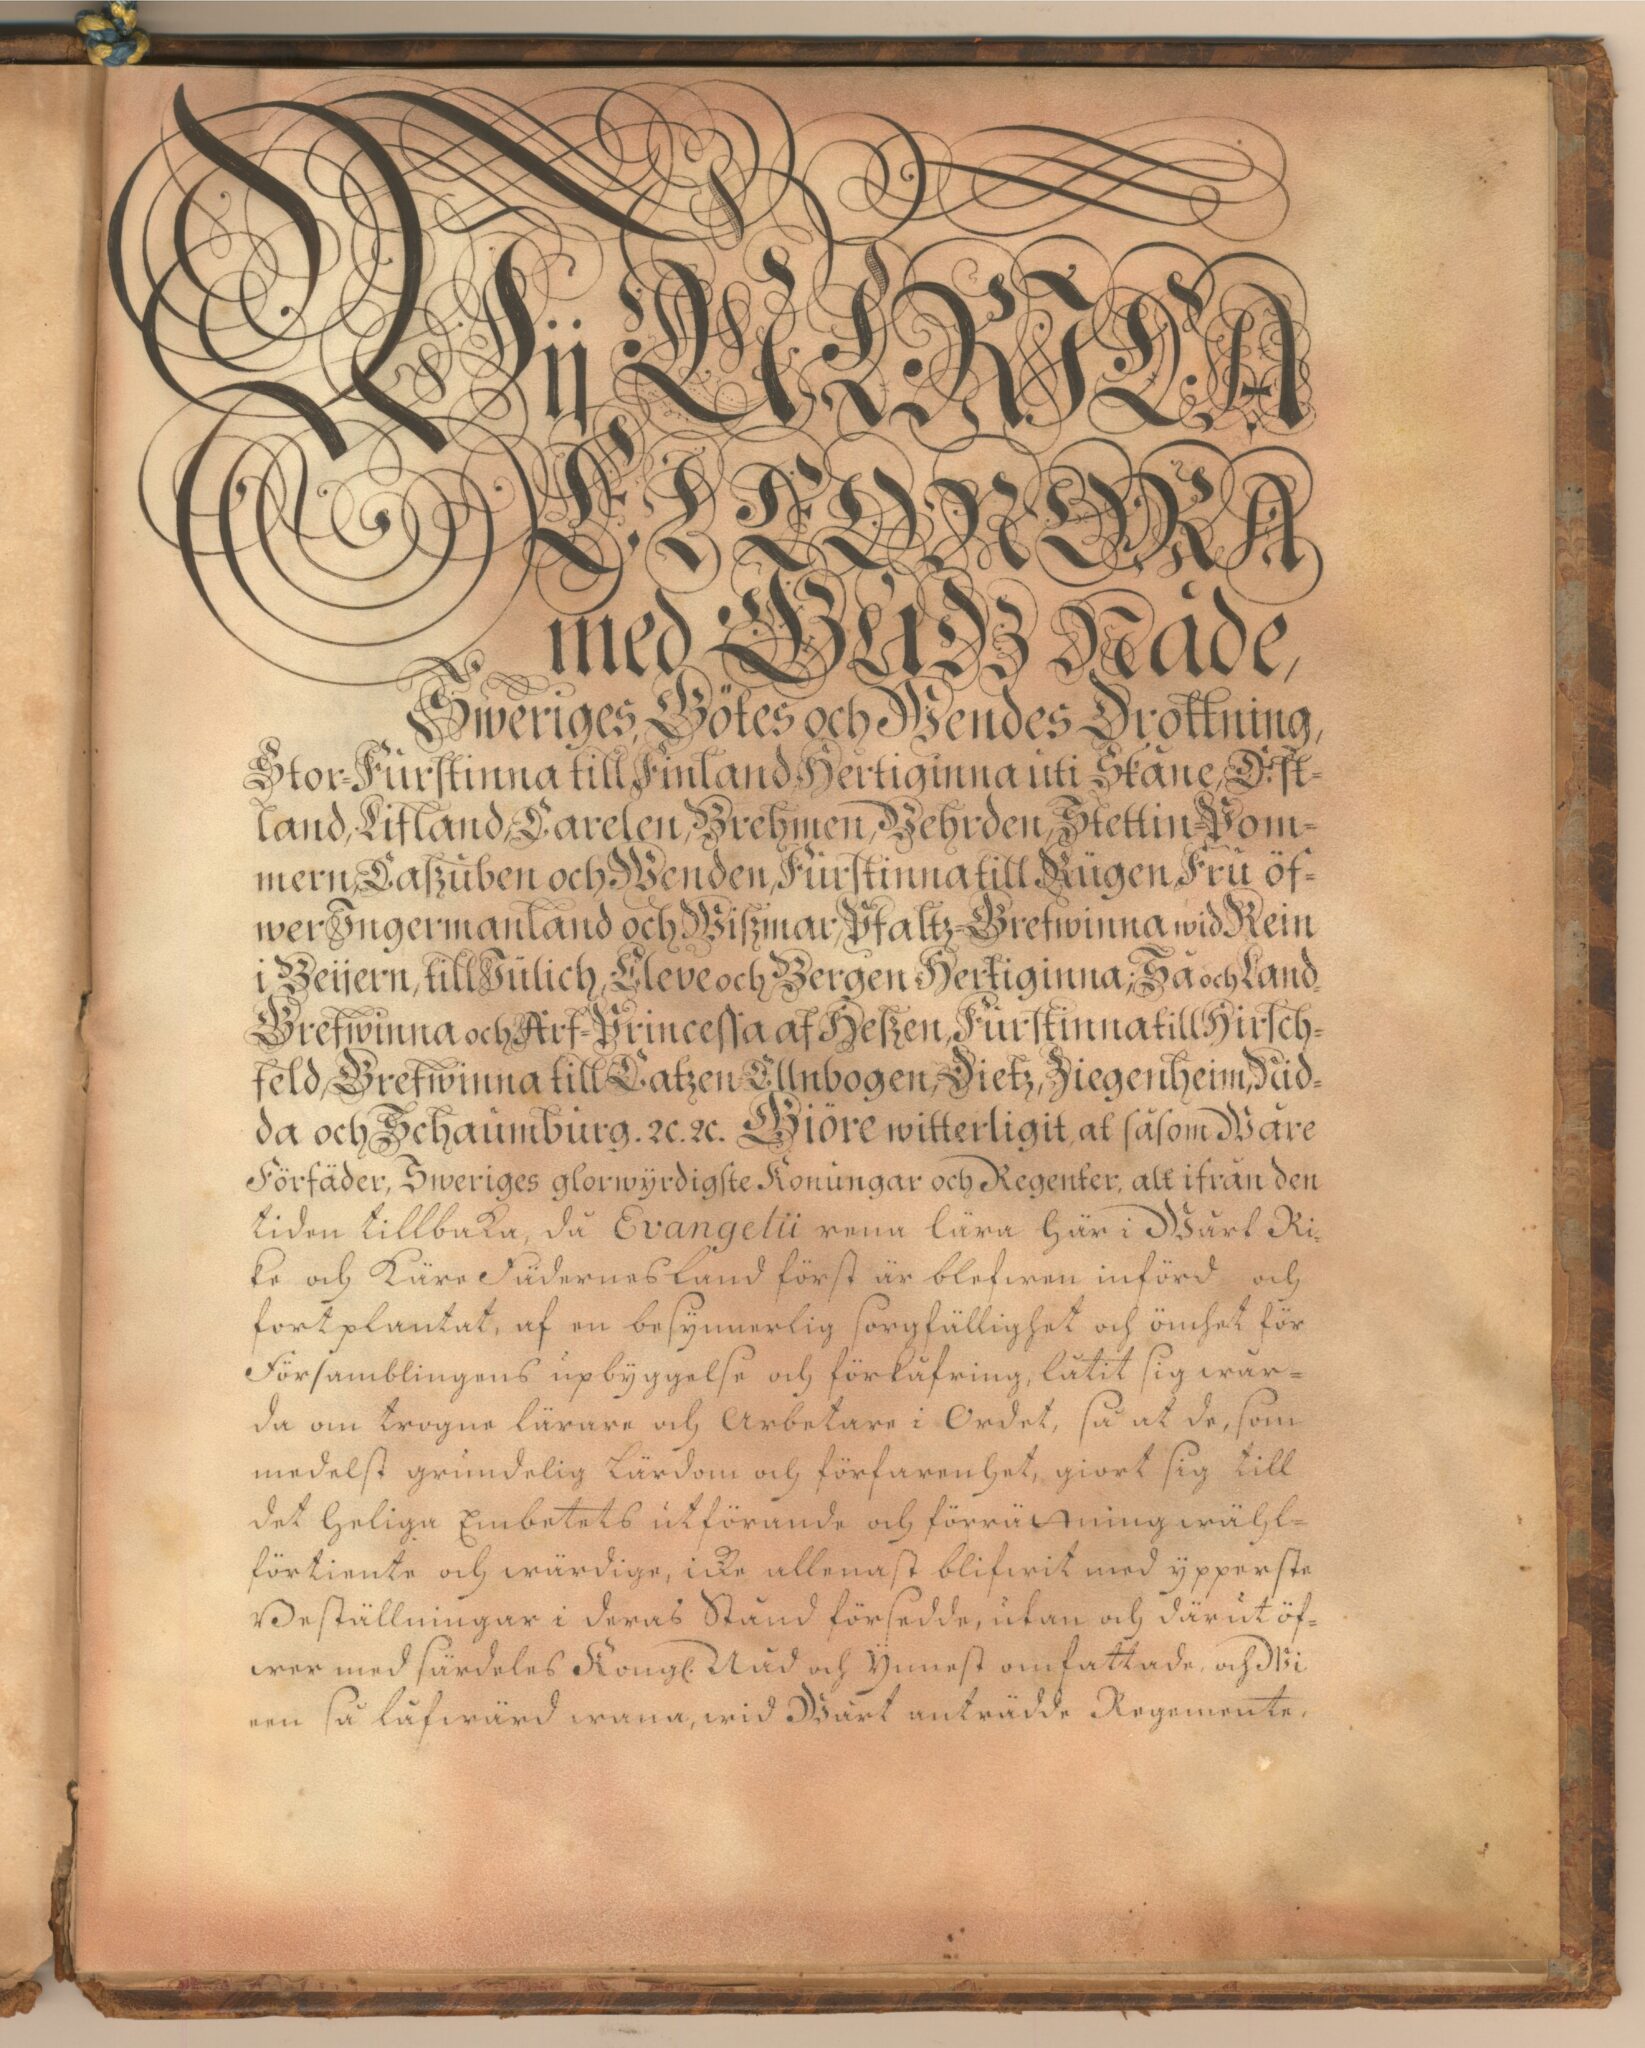 Wij ULRICA
ELEONORA
med GUDZ Nåde,
Sweriges, Götes och Wendes Drottning,
Stor-Furstinna till Finland, Hertiginna uti Skåne, Est-
land, Lifland, Carelen, Brehmen, Vehrden, Stettin-Pom-
mern, Caszuben och Wenden, Furstinna till Rügen, Fru öf-
wer Ingermanland och Wiszmar, Pfaltz-Grefwinna wid Rein
i Beijern, till Jülich, Cleve och Bergen Hertiginna; Så och Land-
Grefwinna och Arf-Princessa af Heszen, Furstinna till Hirsch-
feld, Grefwinna till Catzen Ellnbogen, Dietz, Ziegenheim, Nid-
da och Schaumburg. 2c. 2c. Giöre witterligit, at såsom Wåre
Förfäder, Sweriges glorwyrdigste Konungar och Regenter, alt ifrån den
tiden tillbaka, då Evangelii rena lära här i Wårt Ri-
ke och Käre Fädernesland först är blefwen införd och
fortplantat, af en besynnerlig sorgfällighet och ömhet för
Församblingens upbyggelse och förkåfring, låtit sig wår-
da om trogne lärare och Arbetare i Ordet, så at de, som
medelst grundelig Lärdom och förfarenhet, giort sig till
det Heliga Embetets utförande och förrättning wähl-
förtiente och wärdige, icke allenast blifwit med ypperste
Beställningar i deras Stånd försedde, utan och därut öf-
wer med särdeles Kongl. Nåd och Ynnest omfattade, och Wi
een så låfwärd wana, wid Wårt anträdde Regemente,